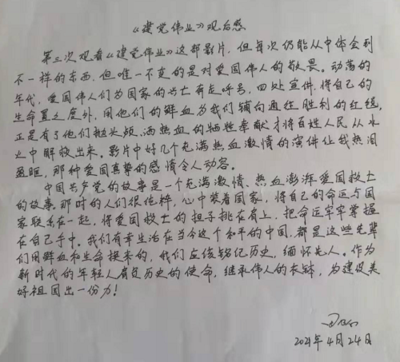 《建党伟业》观后感
第三次观看《建党伟业》这部影片，但每次仍能从中体会到
不一样的东西，但唯一不变的是对爱国伟人的敬畏。动荡的
年代，爱国伟人们为国家的兴亡奔走呼号，四处宣传，将自己的
生命置之度外，用他们的鲜血为我们铺向通往胜利的红毯。
正是有了他们抛头颅，洒热血的牺牲奉献才将百姓人民从水
火之中解救出来。影片中好几个充满热血激情的演讲让我热泪
盈眶，那种爱国真挚的感情令人动容。
中国共产党的故事是一个充满激情、热血澎湃爱国救士
的故事，那时的人们很纯粹，心中装着国家，将自己的命运与国
家联系在一起，将爱国救士的担子挑在肩上，把命运牢牢掌握
在自己手中。我们有幸生活在当今这个和平的中国，都是这些先辈
们用鲜血和生命换来的，我们应该铭记历史，缅怀先人。作为
新时代的年轻人肩负历史的使命，继承伟人的衣钵，为建设美
好祖国出一份力！
2021年4月24日